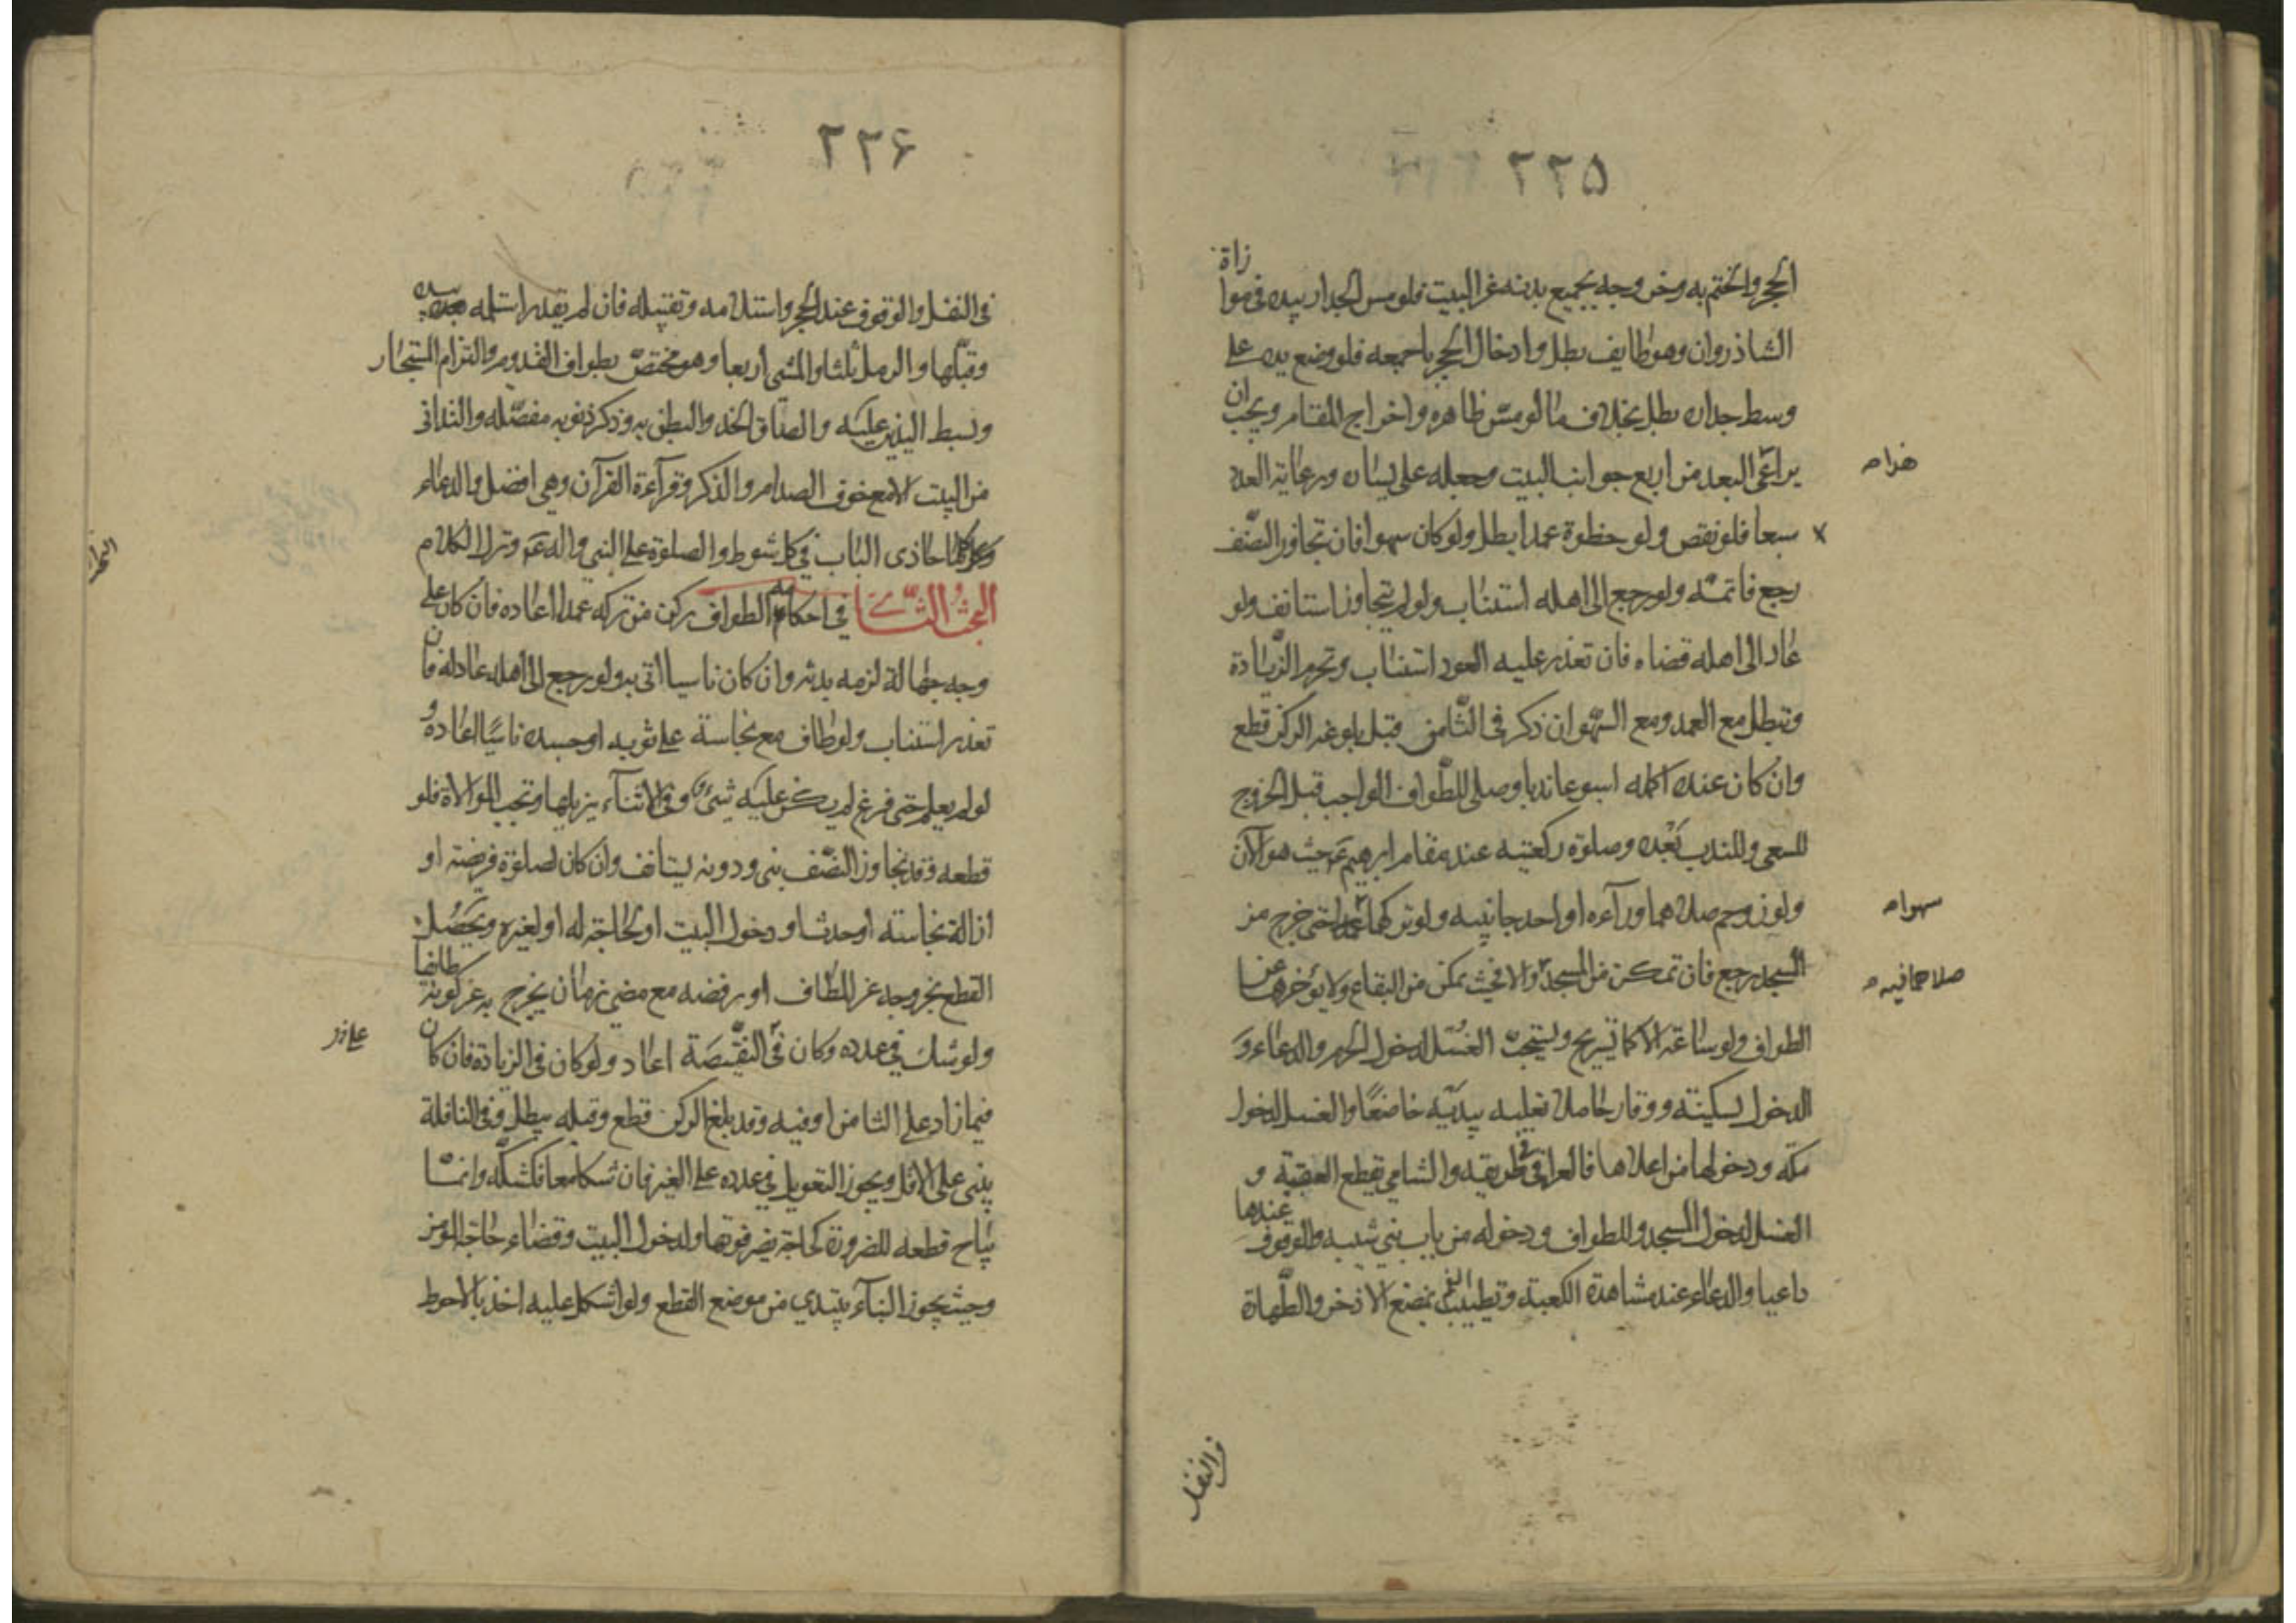 ٢٢٥
الحجر والختم به وخروجه بجميع بدنه عن البيت فلو مس الجدار بيده في موازاة
الشاذروان وهو طايف بطل وادخال الحجر باجمعه فلو وضع يده على
وسط جداره بطل بخلاف ما لو مس ظاهره واخراج المقام ويجب ان
يراعى البعد من اربع جوانب البيت وجعله على يساره ورعاية العدد
سبعا فلو نقص ولو خطوة عمدا بطل ولو كان سهوا فان تجاوز النصف
رجع فاتمه ولو رجع الى اهله استناب ولو لم يتجاوز استانف ولو
عاد الى اهله قضاه فان تعذر عليه العود استناب وتحرم الزيادة
وتبطل مع العمد ومع السهو ان ذكر في الثامن قبل بلوغه الركن قطع
وان كان عنده اكمله اسبوعا ندبا وصلى للطواف الواجب قبل الخروج
للسعى وللندب بعده وصلوة ركعتيه عند مقام ابرهيم ع حيث هو الآن
ولو زوحم صلاهما ورآءه او احد جانبيه ولو تركهما عمدا حتى خرج من
المسجد رجع فان تمكن من المسجد والا فحيث تمكن من البقاع ولا يؤخرهما عن
الطواف ولو ساعة الا كما تسريح ويستحب الغسل لدخول الحرم والدعاء و
الدخول بسكينة ووقار حاملا نعليه بيديه خاضعا والغسل لدخول
مكة ودخولها من اعلاها فالعراقي في طريقه والشامي يقطع العقبة و
الغسل لدخول المسجد وللطواف ودخوله من باب بني شيبه والوقوف عندها
داعيا والدعاء عند مشاهدة الكعبة وتطييب الفم بمضغ الاذخر والطهارة
سهوا
صلاهما فيه
في النفل
٢٢۶
في النفل والوقوف عند الحجر واستلامه وتقبيله فان لم يقدر استلمه بيده
وقبلها والرمل ثلثا والمشى اربعا وهو مختص بطواف القدوم والتزام المستجار
وبسط اليدين عليه والصاق الخد والبطن به وذكر ذنوبه مفصله والتداني
من البيت الا مع خوف الصدام والذكر وقراءة القرآن وهي افضل والدعاء
كلما حاذى الباب في كل شوط والصلوة على النبي واله ع وترك الكلام
البحث الثاني في احكامه الطواف ركن من تركه عمدا اعاده فان كان على
وجه جهالة لزمه بدنة وان كان ناسيا اتى به ولو رجع الى اهله عاد له فان
تعذر استناب ولو طاف مع نجاسة على ثوبه او جسده ناسيا اعاده و
لو لم يعلم حتى فرغ لم يكن عليه شئ وفي الاثناء يزيلها وتجب الموالاة فلو
قطعه وقد تجاوز النصف بنى ودونه يستانف وان كان لصلوة فريضة او
ازالة نجاسة او حدث او دخول البيت او لحاجة له او لغيره ويحصل
القطع بخروجه عن المطاف او رفضه مع مضي زمان يخرج به عن كونه طائفا
ولو شك في عدده وكان في النقيصة اعاد ولو كان في الزيادة فان كان
فيما زاد على الثامن او فيه وقد بلغ الركن قطع وقبله يبطل وفي النافلة
يبنى على الاقل ويجوز التعويل في عدده على الغير فان شكا معا فكشكه وانما
يباح قطعه للضرورة كحاجة يضر فوتها ولدخول البيت وقضاء حاجة المومن
وحيث يجوز البناء يبتدي من موضع القطع ولو اشكل عليه اخذ بالاحوط